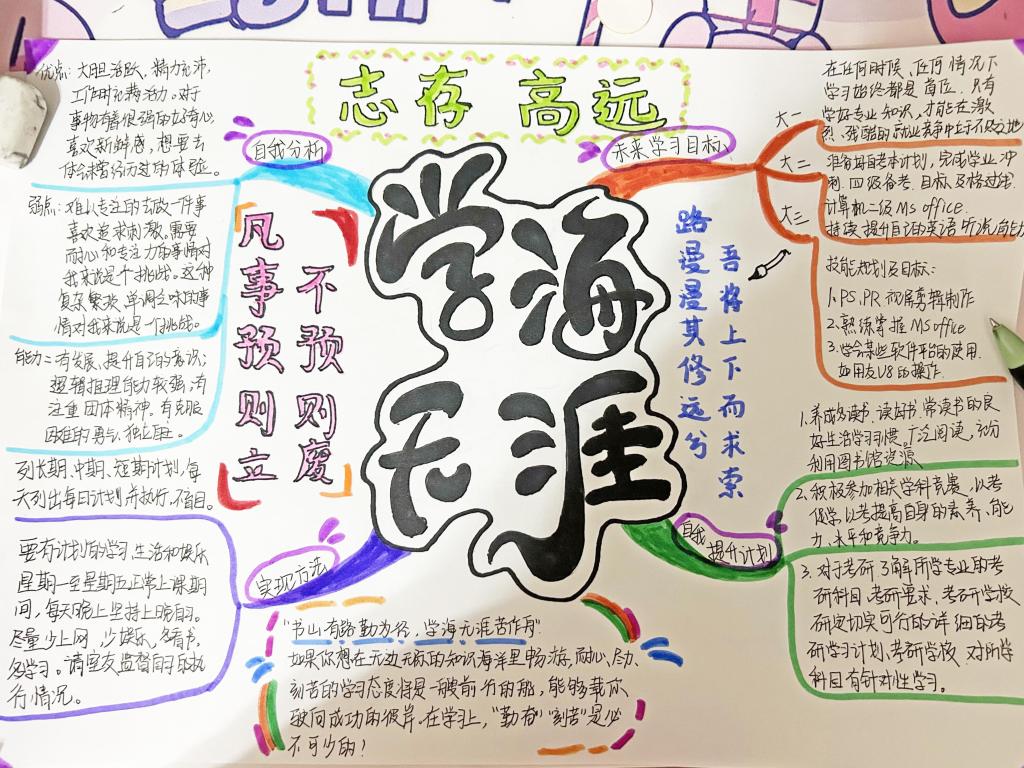 志存 高远
学海
无涯
自我分析
优点：大胆活跃、精力充沛，
工作时充满活力。对于
事物有着很强的好奇心，
喜欢新鲜感，想要去
体验未曾经历过的体验。
弱点：难以专注的去做一件事
喜欢追求刺激，需要
耐心和专注力的事情对
我来说是个挑战。这种
复杂繁琐、单调乏味的事
情对我来说是一个挑战。
能力：有发展、提升自己的意识；
逻辑推理能力较强；有
注重团体精神。有克服
困难的勇气、独立性。
凡事预则立
不预则废
未来学习目标
大一
在任何时候、任何情况下
学习始终都是首位。只有
学好专业知识，才能在激
烈、残酷的就业竞争中立于不败之地
大二
准备专
考本计划，完成学业，冲
刺。四级备考。目标及格过线
计算机二级Ms office.
大三
持续提升自己的英语听说能力
技能规划及目标：
1. PS、PR 视屏剪辑制作
2. 熟练掌握MS office
3. 学会某些软件平台的使用.
如用友U8的操作.
路漫漫其修远兮
吾将上下而求索
实现方法
列长期、中期、短期计划，每
天列出每日计划并执行，不盲目。
要有计划的学习、生活和娱乐
星期一至星期五正常上课期
间，每天晚上坚持上晚自习。
尽量少上网，少娱乐，多看书，
多学习。请室友监督自己的执
行情况。
自我提升计划
1. 养成多读书、读好书、常读书的良
好生活学习习惯。广泛阅读，充分
利用图书馆资源
2. 积极参加相关学科竞赛，以考
促学，以考提高自身的素养、能
力、水平和竞争力。
3. 对于考研，了解所学专业的考
研科目，考研要求，考研学校
研定切实可行的详细的考
研学习计划，考研学校、对所学
科目有针对性学习。
“书山有路勤为径，学海无涯苦作舟”
如果你想在无边无际的知识海洋里畅游，耐心、尽力、
刻苦的学习态度将是一艘前行的船，能够载你
驶向成功的彼岸。在学习上，“勤奋”“刻苦”是必
不可少的！